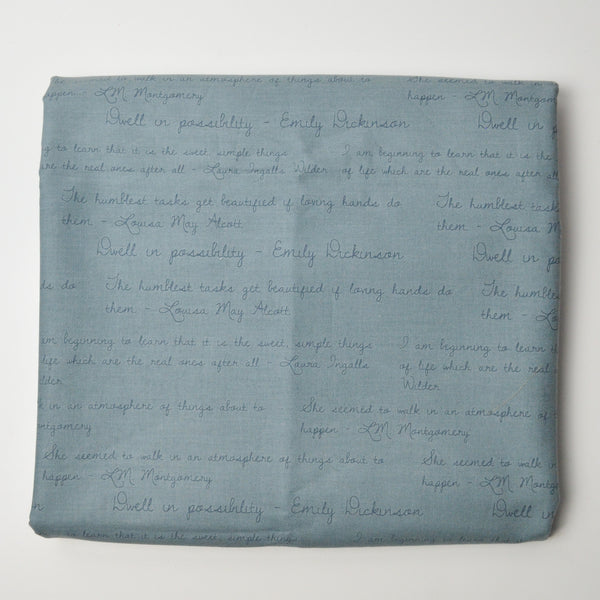 she seemed to walk in an atmosphere of things about to She seemed to walk in
happen - L.M. Montgomery happen - L.M. Montgom
Dwell in possibility - Emily Dickinson Dwell in p
ng to learn that it is the sweet, simple things I am beginning to learn that it is the
are the real ones after all - Laura Ingalls Wilder of life which are the real ones after all
The humblest tasks get beautified if loving hands do The humblest task
them - Louisa May Alcott them - Louisa M
Dwell in possibility - Emily Dickinson Dwell in po
ds do The humblest tasks get beautified if loving hands do The humble
them - Louisa May Alcott them - Lo
am beginning to learn that it is the sweet, simple things I am beginning to learn th
life which are the real ones after all - Laura Ingalls of life which are the real
Wilder Wilder
k in an atmosphere of things about to She seemed to walk in an atmosphere of t
ontgomery happen - L.M. Montgomery
She seemed to walk in an atmosphere of things about to She seemed to walk in
happen - L.M. Montgomery happen - L.M. Montgo
Dwell in possibility - Emily Dickinson Dwell in
learn that it is the sweet, simple things I am beginning to learn that